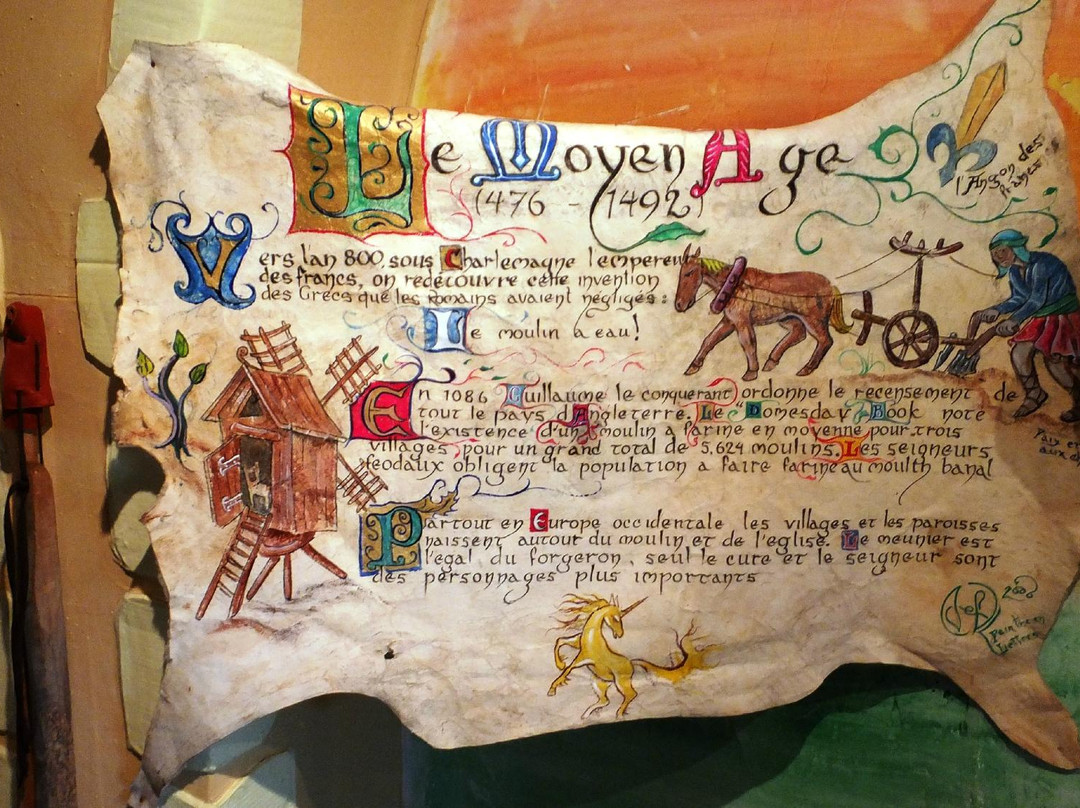 Le Moyen Age
(476 - 1492)
l'Angon des
francs
Vers l'an 800, sous Charlemagne l'empereur
des francs, on redécouvre cette invention
des Grecs que les romains avaient négligés :
Le moulin a eau!
En 1086 Guillaume le conquerant ordonne le recensement de
tout le pays d'Angleterre. Le "Domesday Book note
l'existence d'un moulin a farine en moyenne pour trois
villages, pour un grand total de 5,624 moulins. Les seigneurs
feodaux obligent la population a faire farine au moulin banal
Partout en Europe occidentale les villages et les paroisses
naissent autour du moulin et de l'eglise. Le meunier est
l'egal du forgeron, seul le cure et le seigneur sont
des personnages plus importants